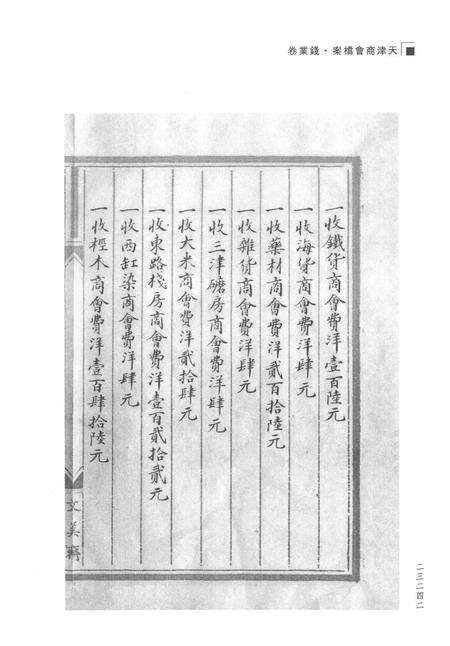 天津商會檔案·錢業卷
一收鐵貨商會費洋壹百陸元
一收海貨商會費洋肆元
一收藥材商會費洋貳百拾陸元
一收雜貨商會費洋肆元
一收三津磨房商會費洋肆元
一收大米商會費洋貳拾肆元
一收東路棧房商會費洋壹百貳拾貳元
一收西缸染商會費洋肆元
一收樫木商會費洋壹百肆拾陸元
文美齋
二三二四二